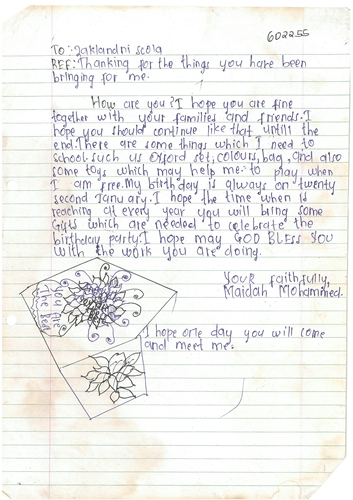 602255
To:- Jaklandri scola
REF: Thanking for the things you have been
bringing for me.
How are you? I hope you are fine
together with your families and friends. I
hope you should continue like that untill the
end. There are some things which I need to
school such us Oxford set, colours, bag, and also
some toys which may help me to play when
I am free. My birthday is always on twenty
second January. I hope the time when is
reaching at every year you will bring some
Gifts which are needed to celebrate the
birthday party. I hope may GOD BLESS YOU
with the work you are doing.
Your faithfully,
Maidah Mohammed.
You are
The Best
I hope one day you will come
and meet me.